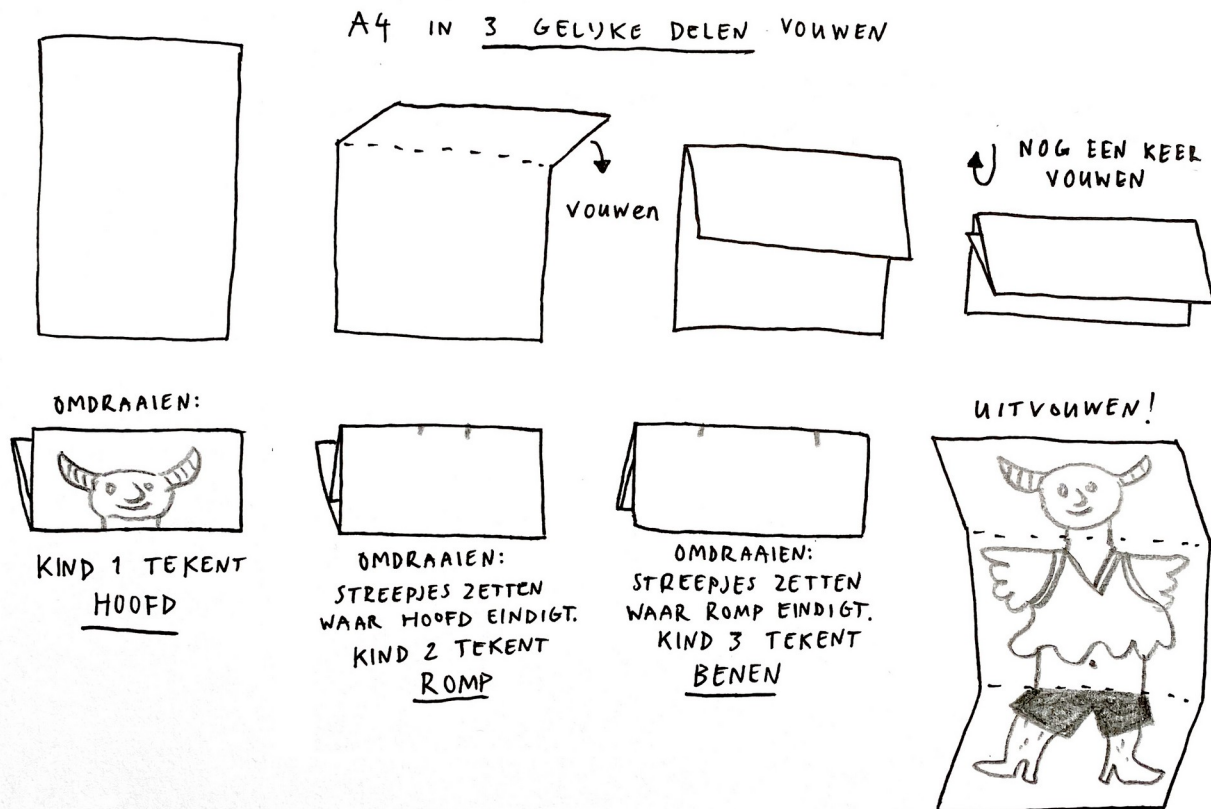 A4 IN 3 GELIJKE DELEN VOUWEN
vouwen
NOG EEN KEER
VOUWEN
OMDRAAIEN:
KIND 1 TEKENT
HOOFD
OMDRAAIEN:
STREEPJES ZETTEN
WAAR HOOFD EINDIGT.
KIND 2 TEKENT
ROMP
OMDRAAIEN:
STREEPJES ZETTEN
WAAR ROMP EINDIGT.
KIND 3 TEKENT
BENEN
UITVOUWEN!